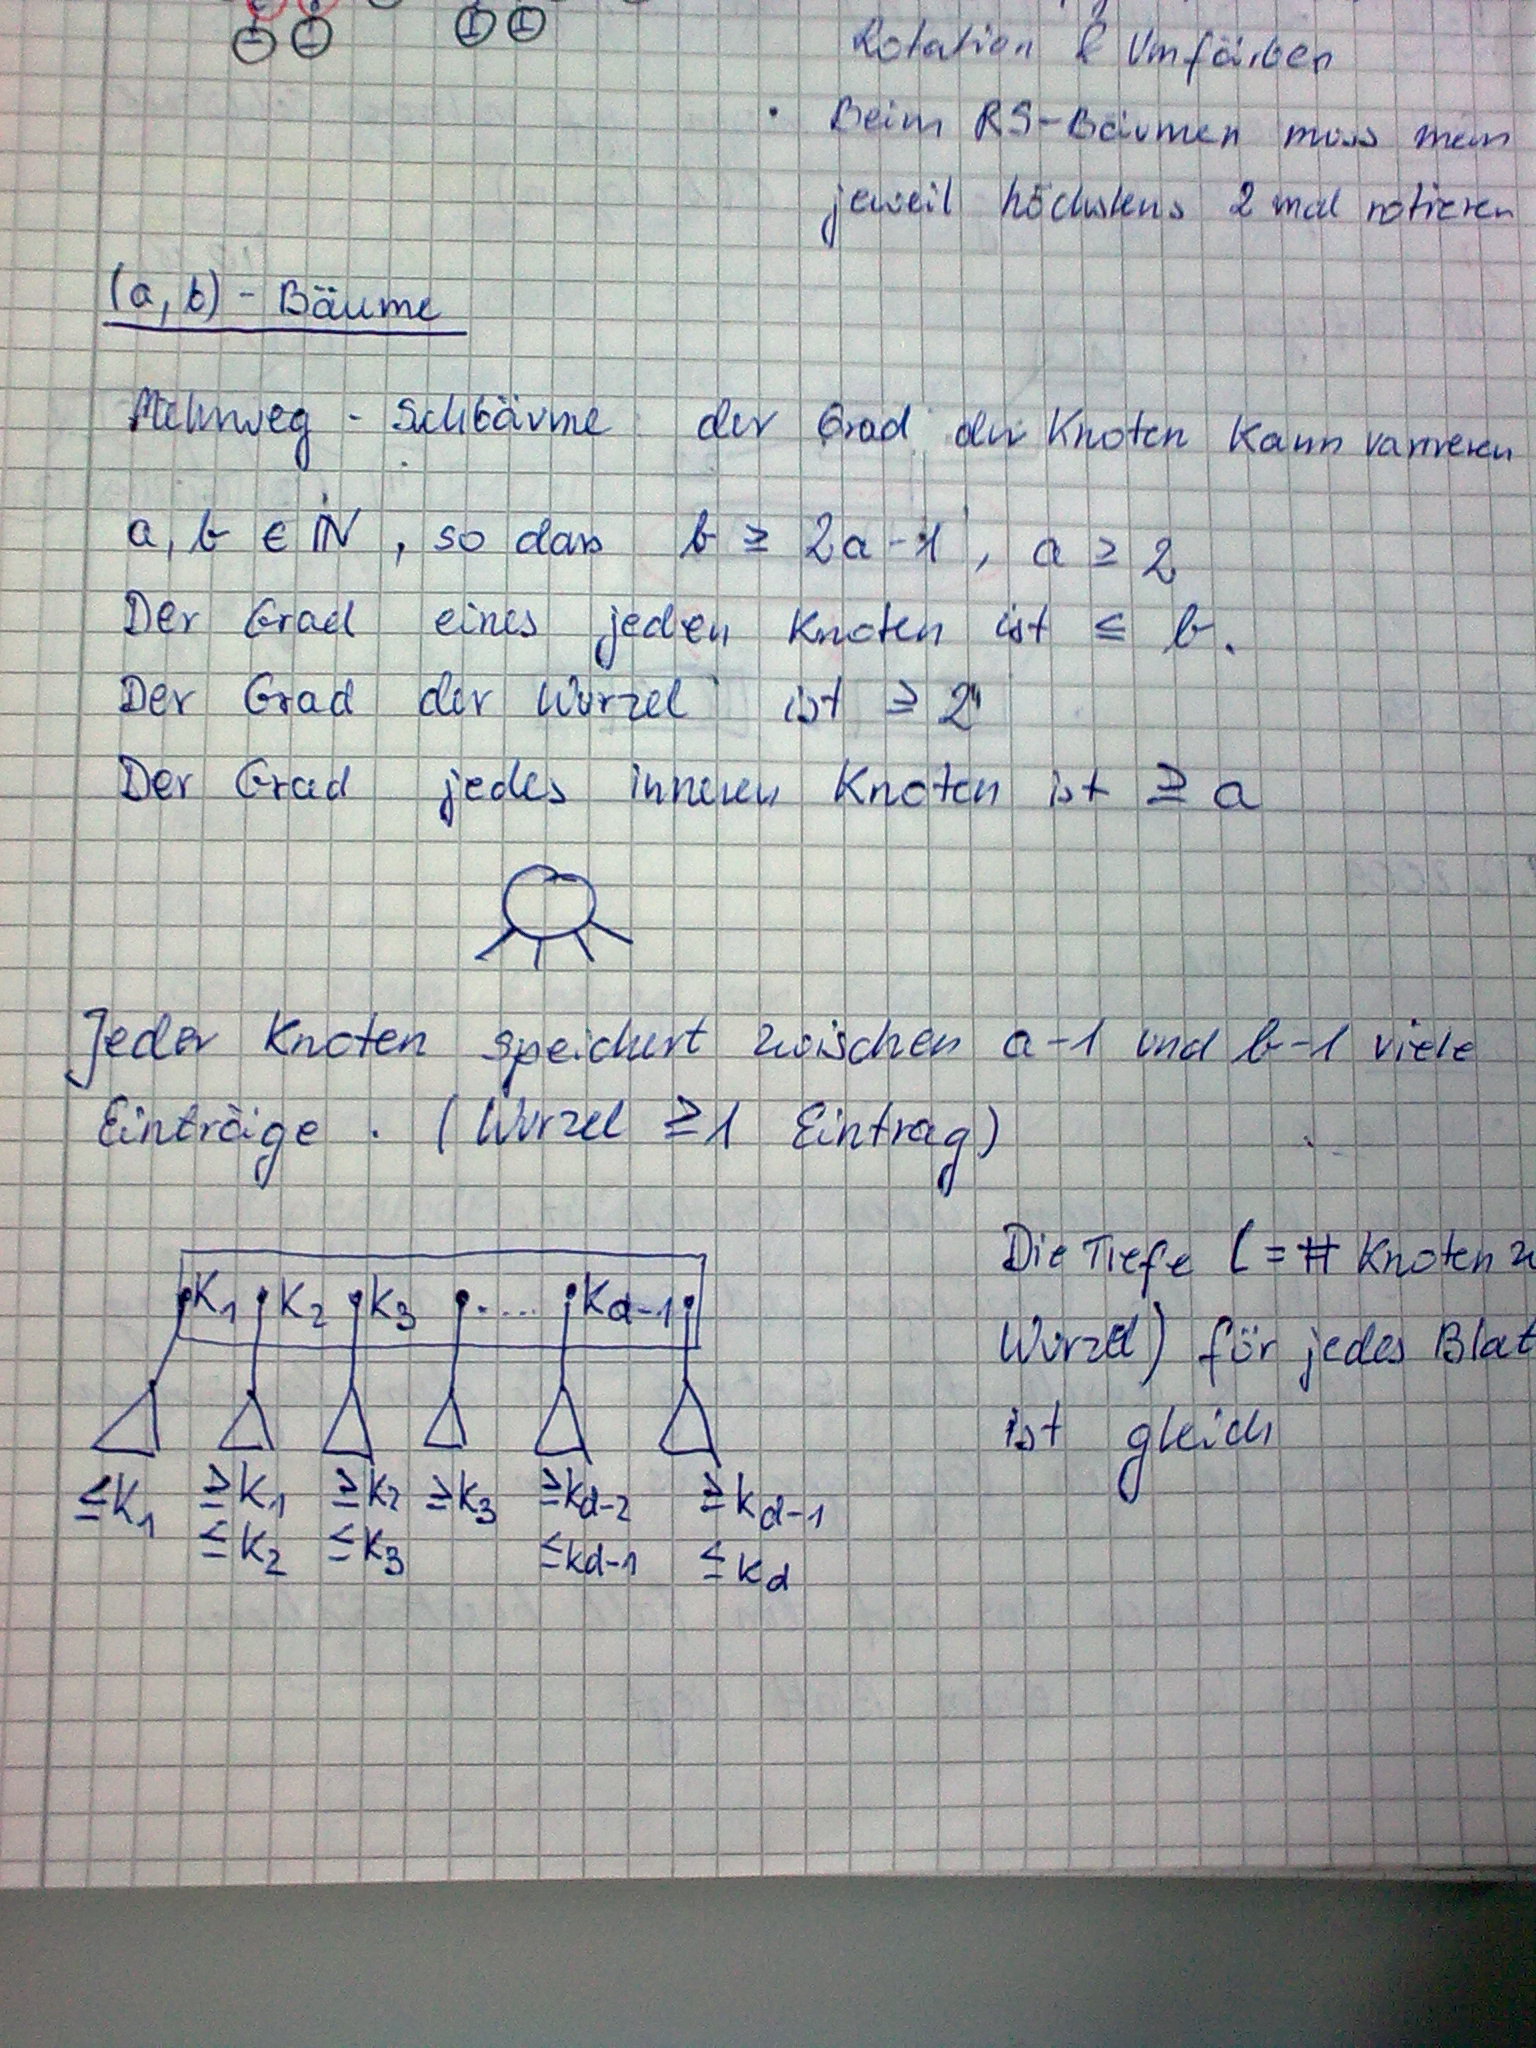 Rotation & Umfärben
• Beim RS-Bäumen muss man
jeweil höchstens 2 mal rotieren
(a,b) - Bäume
Mehrweg - Suchbäume der Grad der Knoten kann variieren
a, b ∈ ℕ, so dass b ≥ 2a-1, a ≥ 2
Der Grad eines jeden Knoten ist ≤ b.
Der Grad der Wurzel ist ≥ 2
Der Grad jedes inneren Knoten ist ≥ a
Jeder Knoten speichert zwischen a-1 und b-1 viele
Einträge. (Wurzel ≥ 1 Eintrag)
K1 K2 K3 .... Kd-1
≤K1 ≥K1 ≥K2 ≥K3 ≥Kd-2 ≥Kd-1
≤K2 ≤K3 ≤Kd-1 ≤Kd
Die Tiefe (= # Knoten z
Wurzel) für jedes Blat
ist gleich